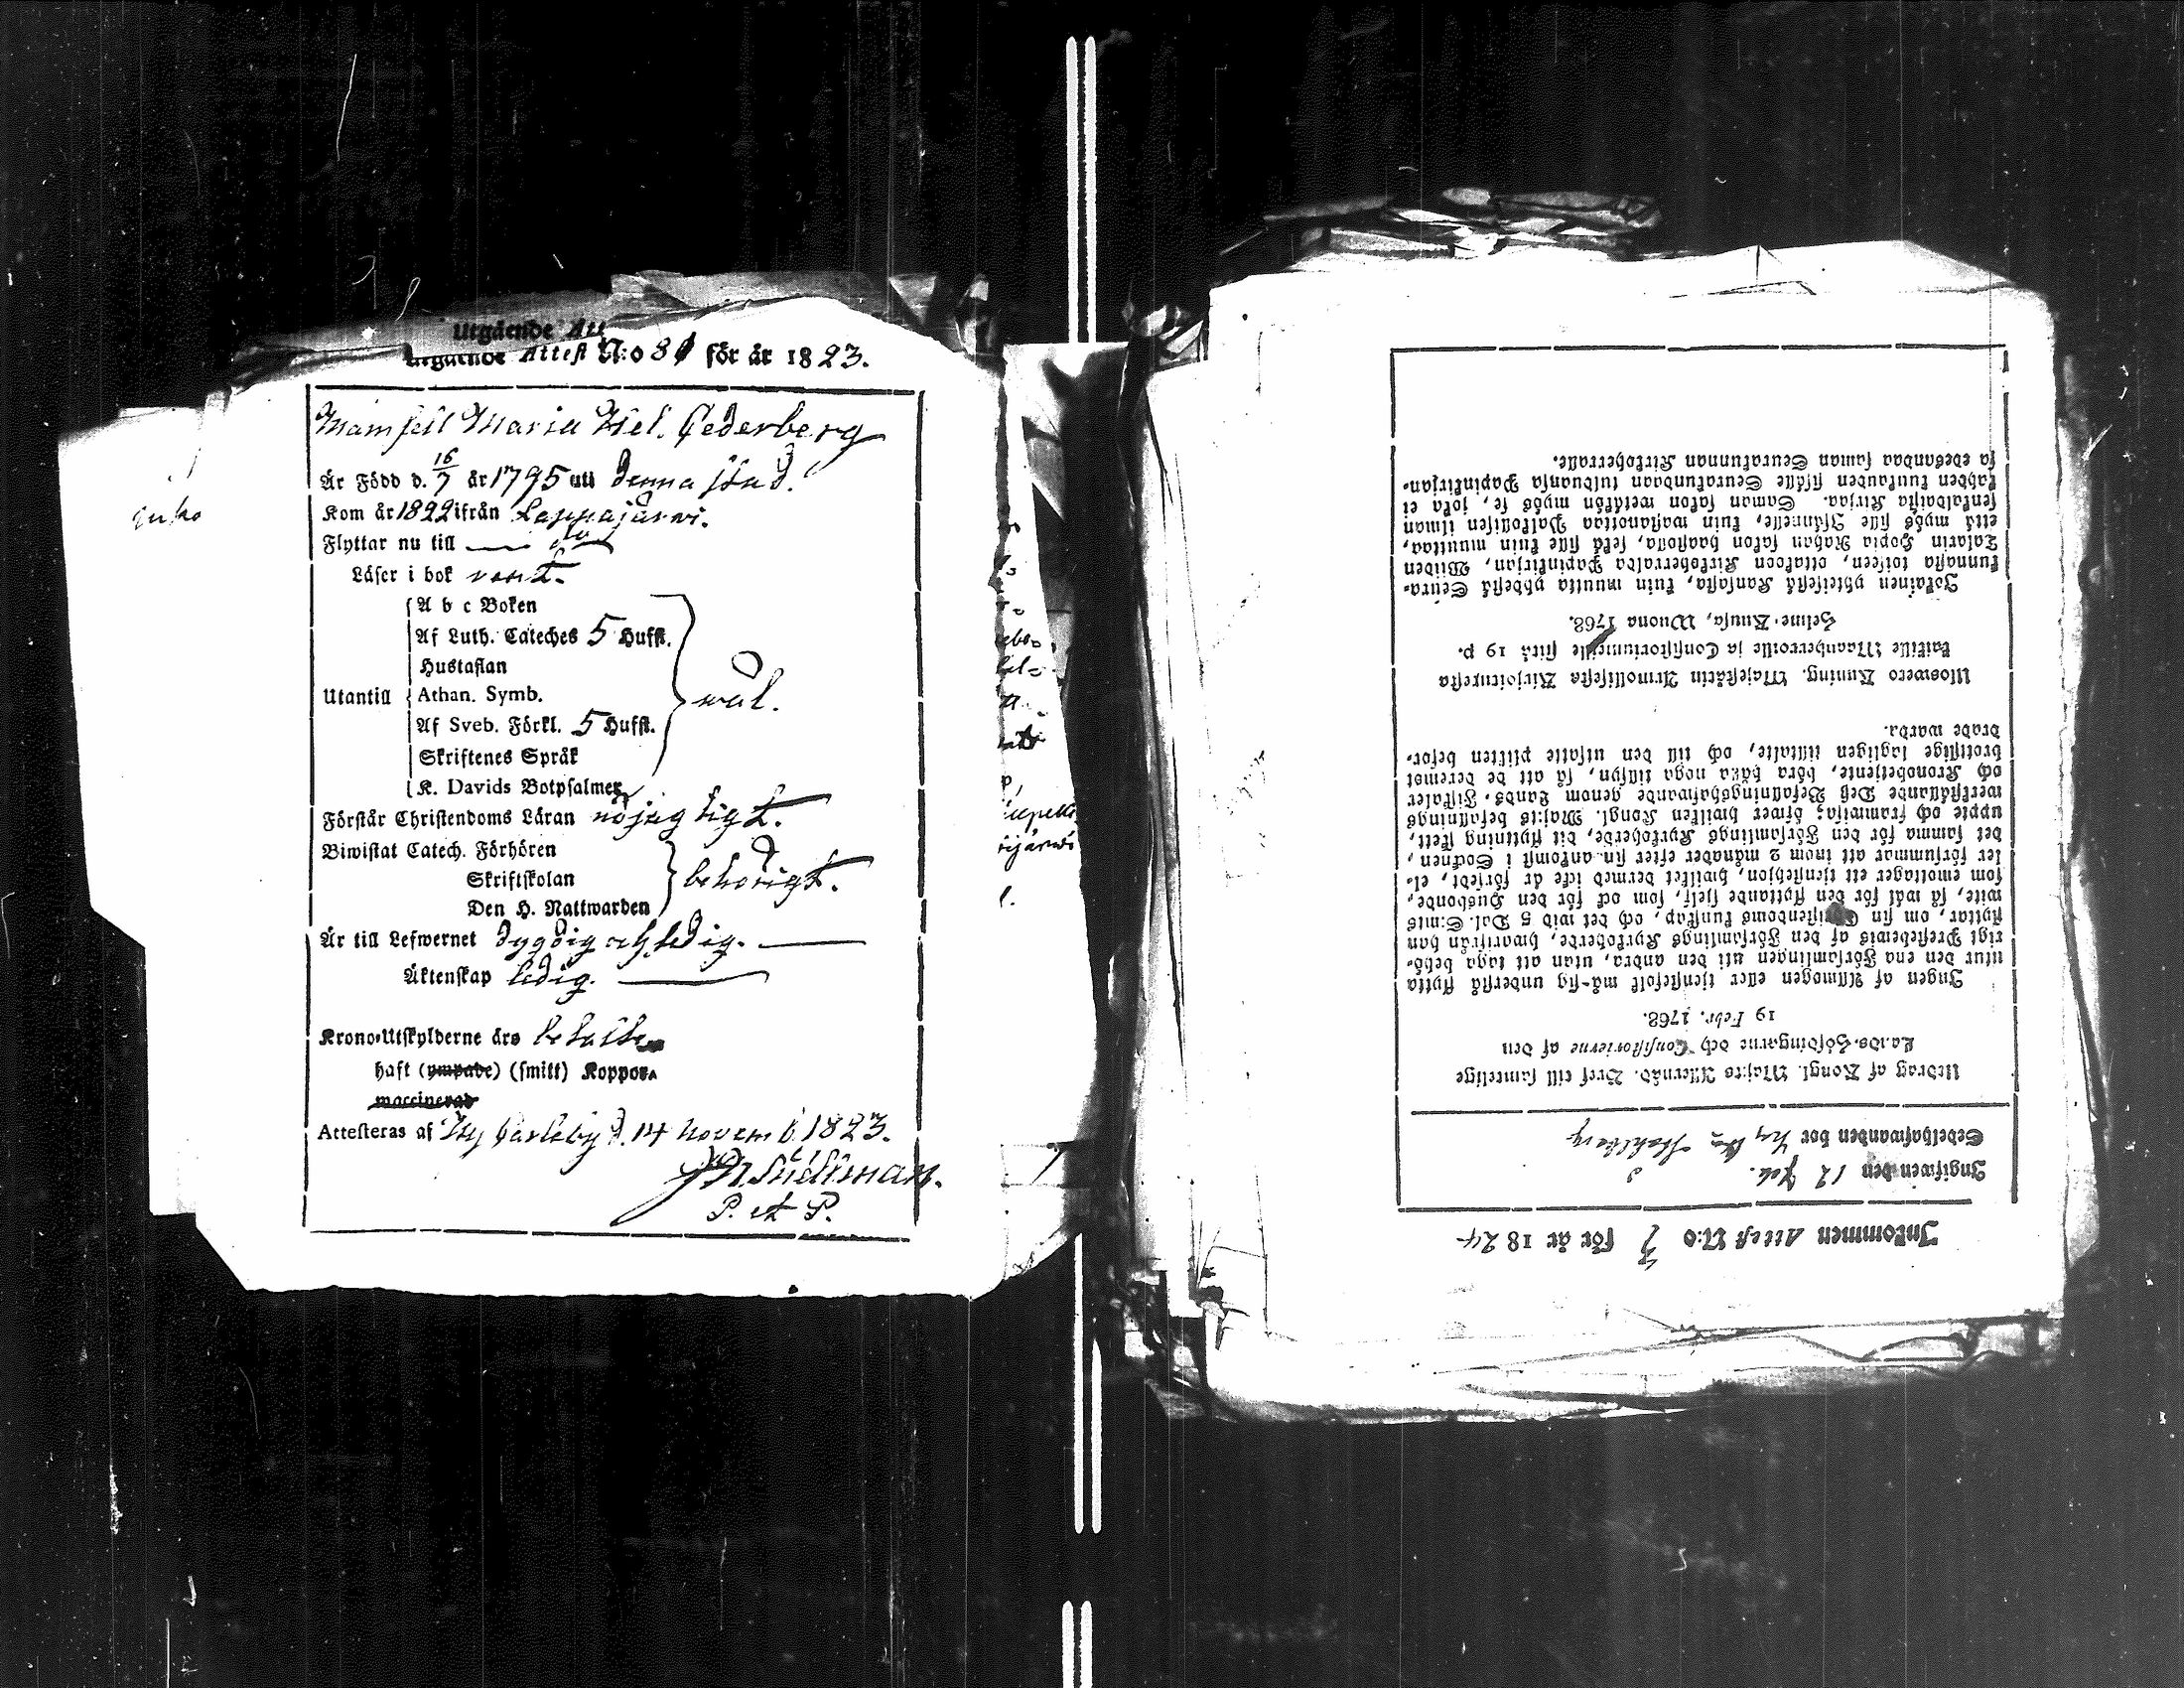 Utgående Att
Utgående Attest N:o 81 för år 1823.
Mamsell Maria Hel. Cederberg
Är Född d. 16/7 år 1795 uti denna stad.
Kom år 1822 ifrån Lappajärwi.
Flyttar nu till
Läser i bok rent.
A b c Boken
Af Luth. Cateches 5 Hufst.
Hustaflan
Utantill Athan. Symb. wäl.
Af Sveb. Förkl. 5 Hufst.
Skriftenes Språk
K. Davids Botpsalmer
Förstår Christendoms Läran nöjagtigt.
Biwistat Catech. Förhören
Skriftskolan behörigt.
Den H. Nattwarden
Är till Lefwernet dygdig och ledig.
Äktenskap ledig.
Krono-Utskylderne äro betalde
haft (ympade) (smitt) Koppor
waccinerad
Attesteras af Ny Carleby d. 14 Novemb. 1823.
P. et P.
Inkommen Attest N:o 7 för år 1824
Ingifwen den 12
Sedelhafwanden bor
Utdrag af Kongl. Maj:ts Allernåd. Bref till samtelige
Lands-Höfdingarne och Consistorierne af den
19 Febr. 1768.
Ingen af Allmogen eller tjenstefolk må sig understå flytta
utur den ena Församlingen uti den andra, utan att taga behö-
rigt Prestebewis af den Församlings Kyrkoherde, hwarifrån han
flyttar, om sin Christendoms kunskap, och det wid 5 Dal. S:mts
wite, så wäl för den flyttande sjelf, som ock för den Husbonde,
som emottager ett tjenstehjon, hwilket dermed icke är försedt, el-
ler försummar att inom 2 månader efter sin ankomst i Socknen,
det samma för den Församlings Kyrkoherde, dit flyttning skett,
uppte och framwisa; öfwer hwilken Kongl. Maj:ts befallnings
werkställande Deß Befallningshafwande genom Lands-Fiskaler
och Kronobetjente, böra hafwa noga tillsyn, så att de deremot
brottslige lagligen tilltalte, och till den utsatte plikten befor-
drade warda.
Uloswero Kuning. Majestätin Armollisesta Kirjoituxesta
kaikille Maanherroille ja Consistoriumeille siitä 19 p.
Helme-Kuusa, Wuona 1768.
Jokainen yhteisestä Kansasta, kuin muutta yhdestä Seura-
kunnasta toiseen, ottakoon Kirkoherralda Papinkirjan, Wiiden
Talarin Hopia Rahan sakon haastolla, sekä sille kuin muuttaa,
että myös sille Isännelle, kuin wastanottaa Palkollisen ilman
senkaldaista Kirjaa. Saman sakon wetäkön myös se, joka ei
kahden kuukauden sisälle Seurakundaan tulduansa Papinkirjan-
sa edesandaa saman Seurakunnan Kirkoherralle.